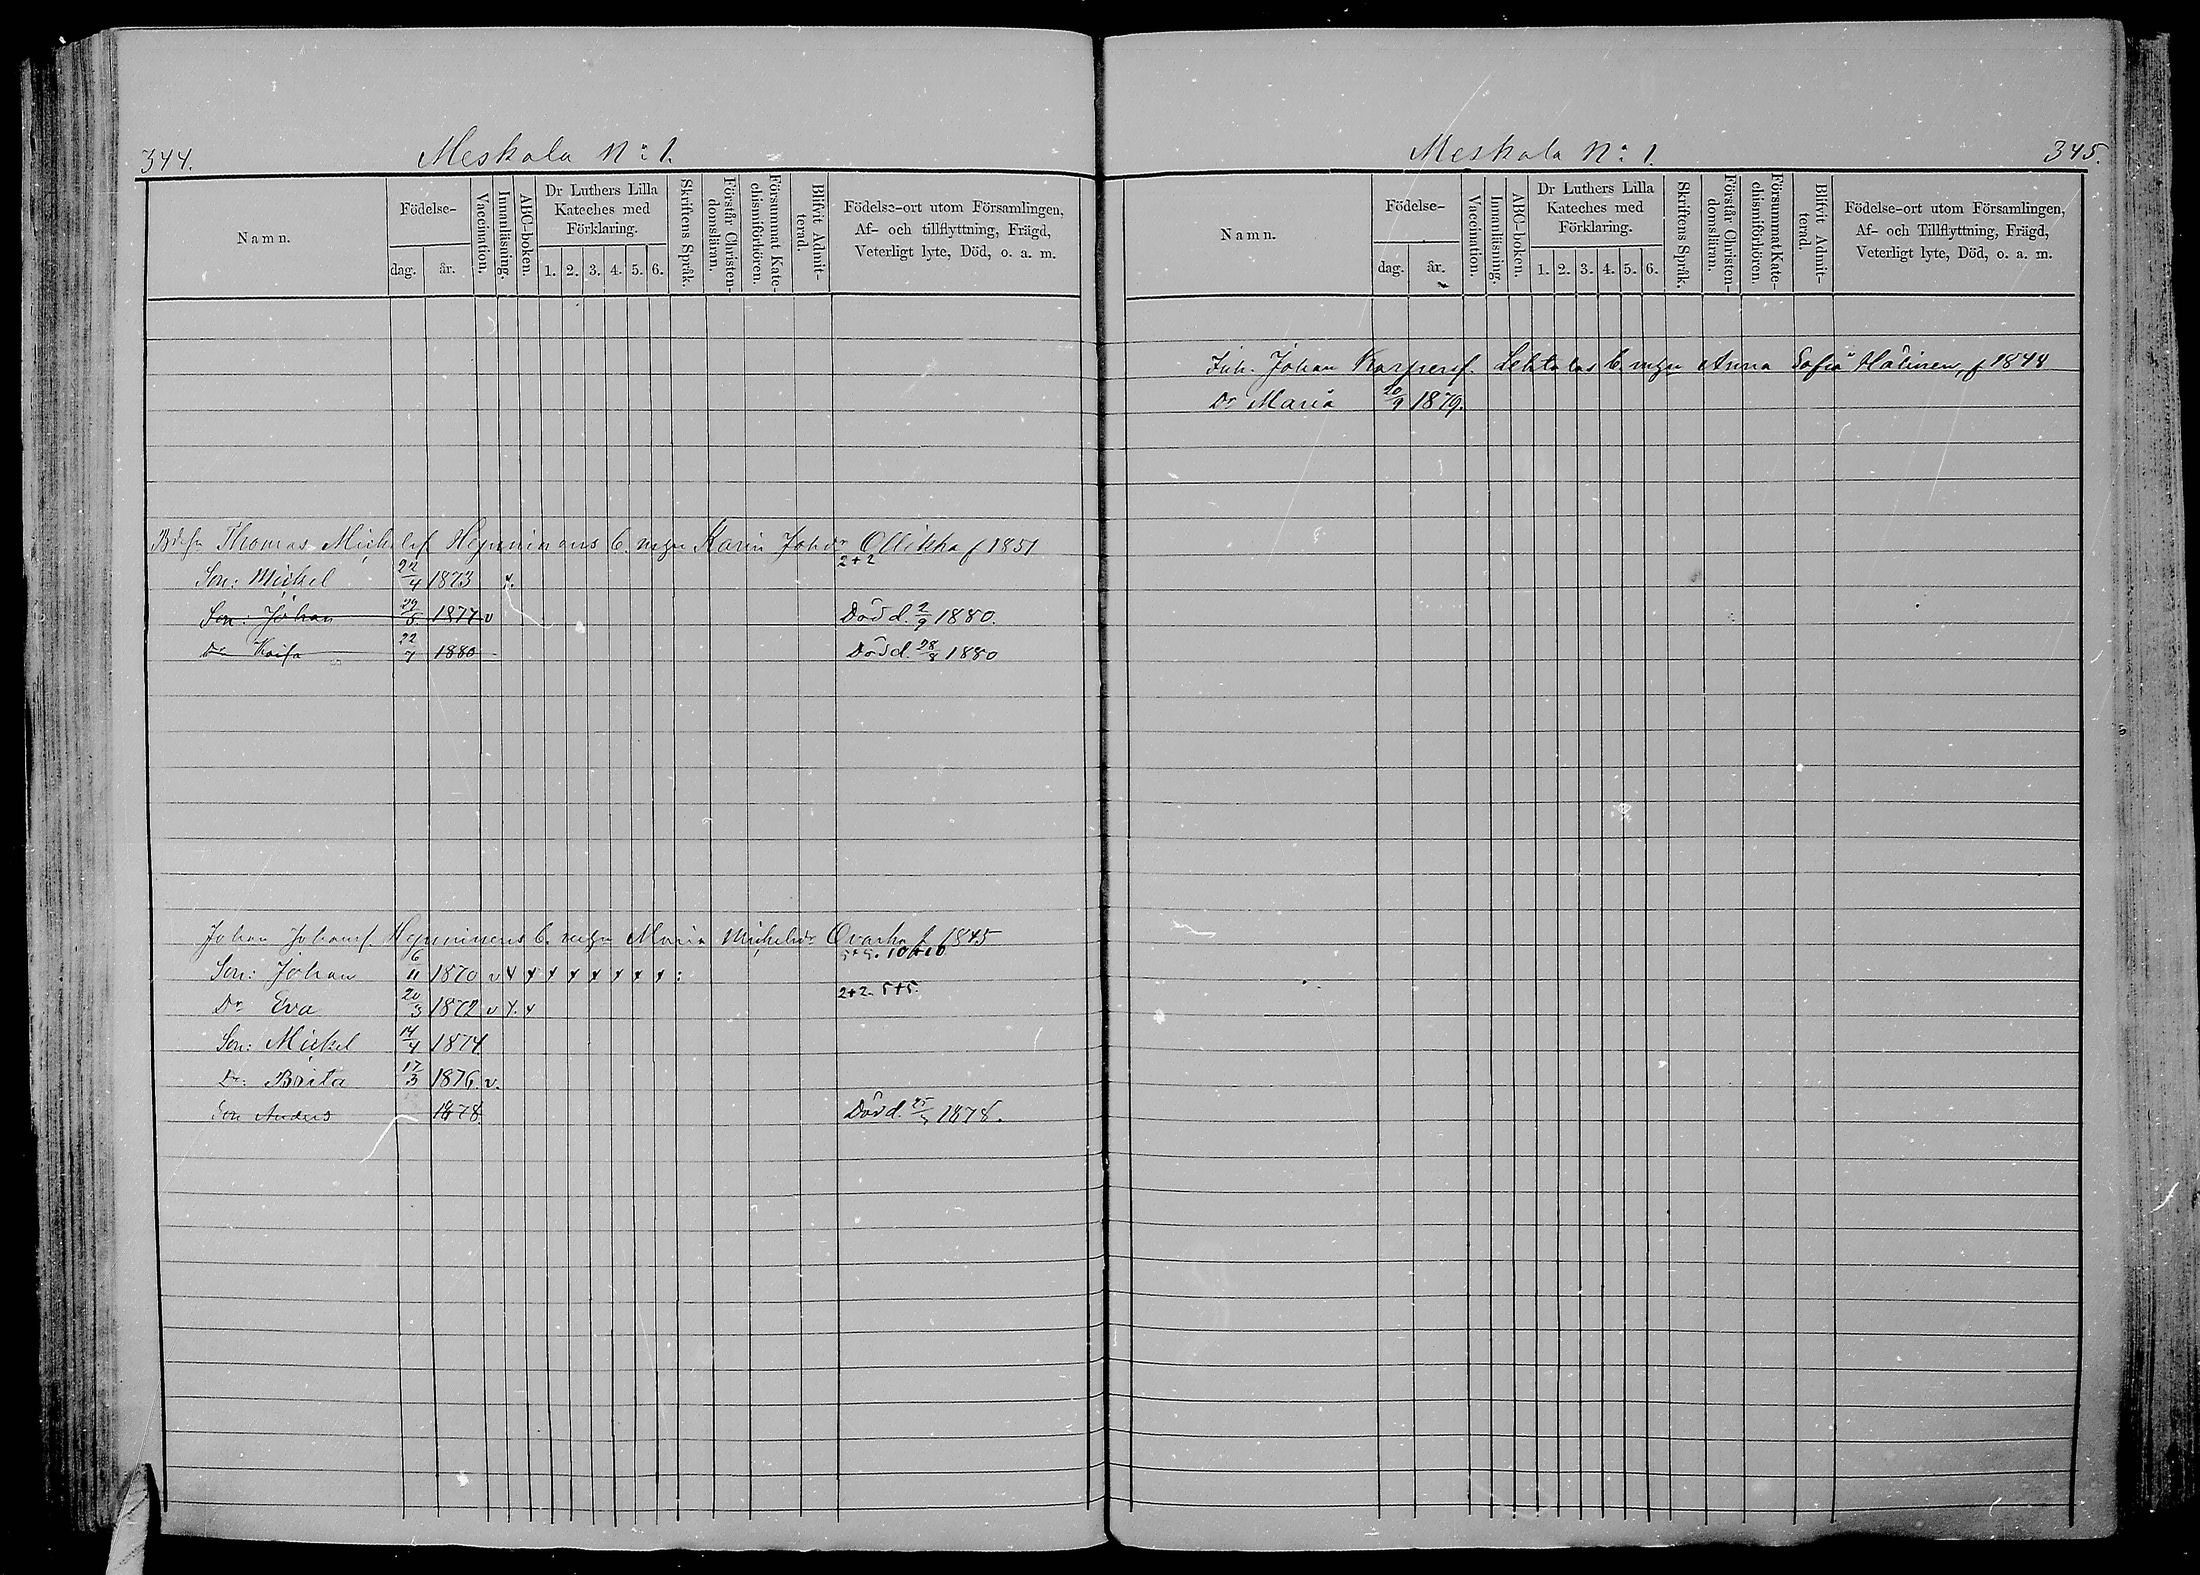 344.
Meskala No 1.
Namn.
Födelse-
dag.
år.
Vaccination.
Innanläsning.
ABC-boken.
Dr Luthers Lilla
Kateches med
Förklaring.
1. 2. 3. 4. 5. 6.
Skriftens Språk.
Förstår Christen-
domsläran.
Försummat Kate-
chismiförhören.
Blifvit Admit-
terad.
Födelse-ort utom Församlingen,
Af- och tillflyttning, Frägd,
Veterligt lyte, Död, o. a. m.
Thomas Michelsf Heponinens b. mågu Karin Johdr Ollikka f 1851
2+2
Son: Mickel 22/4 1873
Son: Johan 1877 v Död d. 2/9 1880.
Dr Kaisa 22/7 1880 Död d. 28/8 1880
Johan Johansf. Heponinens b. mågu Maria Michelsdr f. 1845
10+10
Son: Johan 16/11 1870 v
2+2 5+5.
Dr Eva 20/3 1872 v
Son: Mickel 14/4 1874
Dr: Brita 17/3 1876. v.
Son Anders 1878 Död d. 1878.
Meskala No 1.
345.
Namn.
Födelse-
dag.
år.
Vaccination.
Innanläsning.
ABC-boken.
Dr Luthers Lilla
Kateches med
Förklaring.
1. 2. 3. 4. 5. 6.
Skriftens Språk.
Förstår Christen-
domsläran.
Försummat Kate-
chismiförhören.
Blifvit Admit-
terad.
Födelse-ort utom Församlingen,
Af- och Tillflyttning, Frägd,
Veterligt lyte, Död, o. a. m.
Inh. Johan Karpersf. Lehtolas b. mågu Anna Sofia Hälinen, f 1848
Dr Maria 20/9 1879.